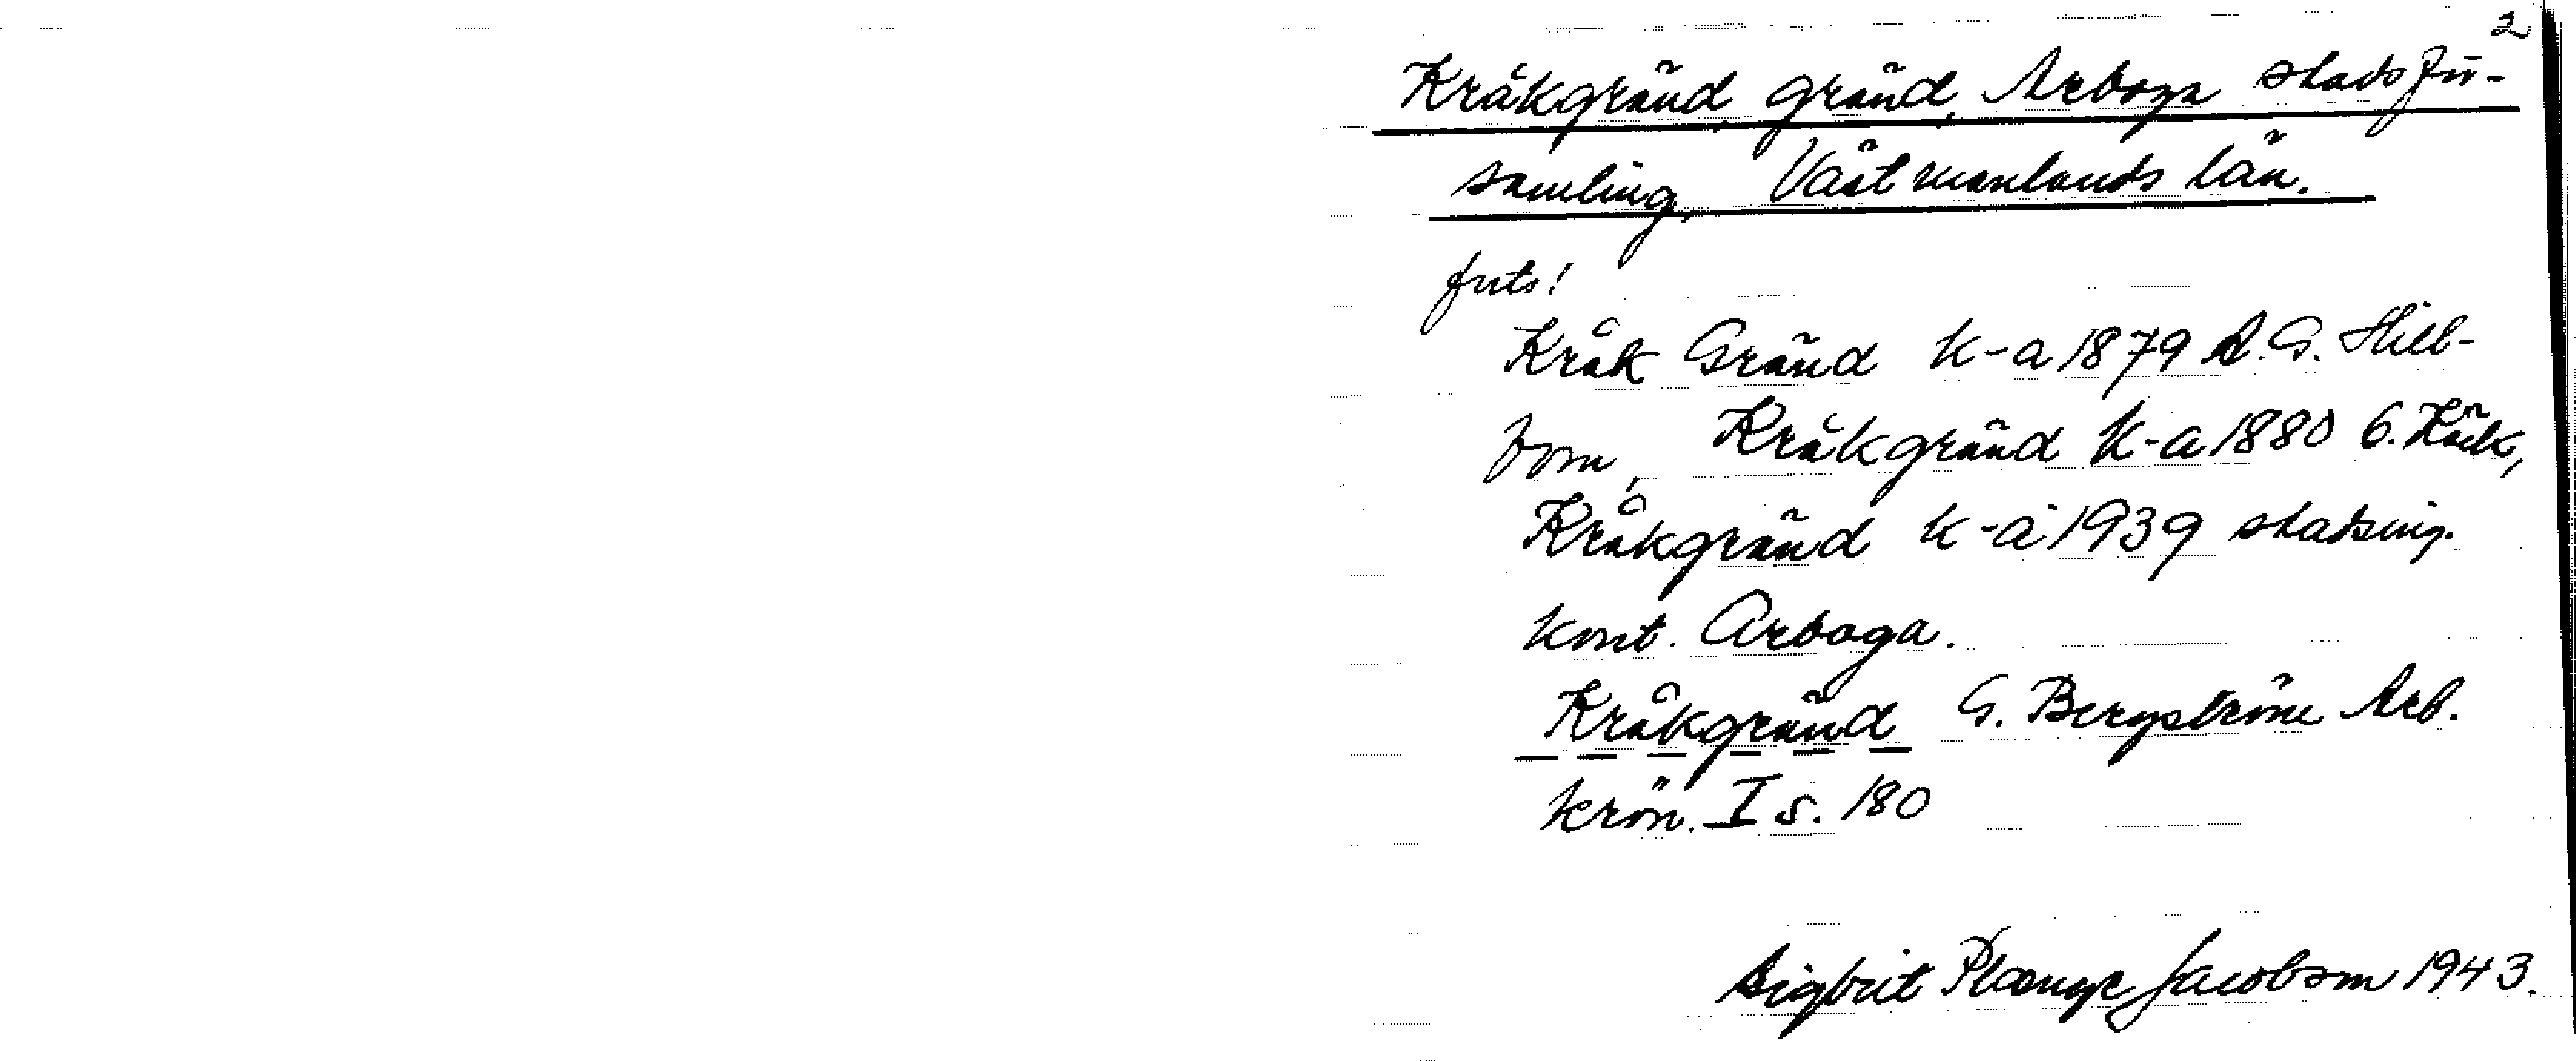 2
Kråkgränd, gränd, Arboga stadsför-
samling, Västmanlands län.
forts!
Kråk Gränd K-a 1879 A.G. Hell-
bom, Kråkgränd K-a 1880 G. Käck,
Kråkgränd K-a 1939 stadsing.
kont. Arboga.
Kråkgränd G. Bergström Arb.
krön. I s. 180
Sigbrit Plænge Jacobson 1943.